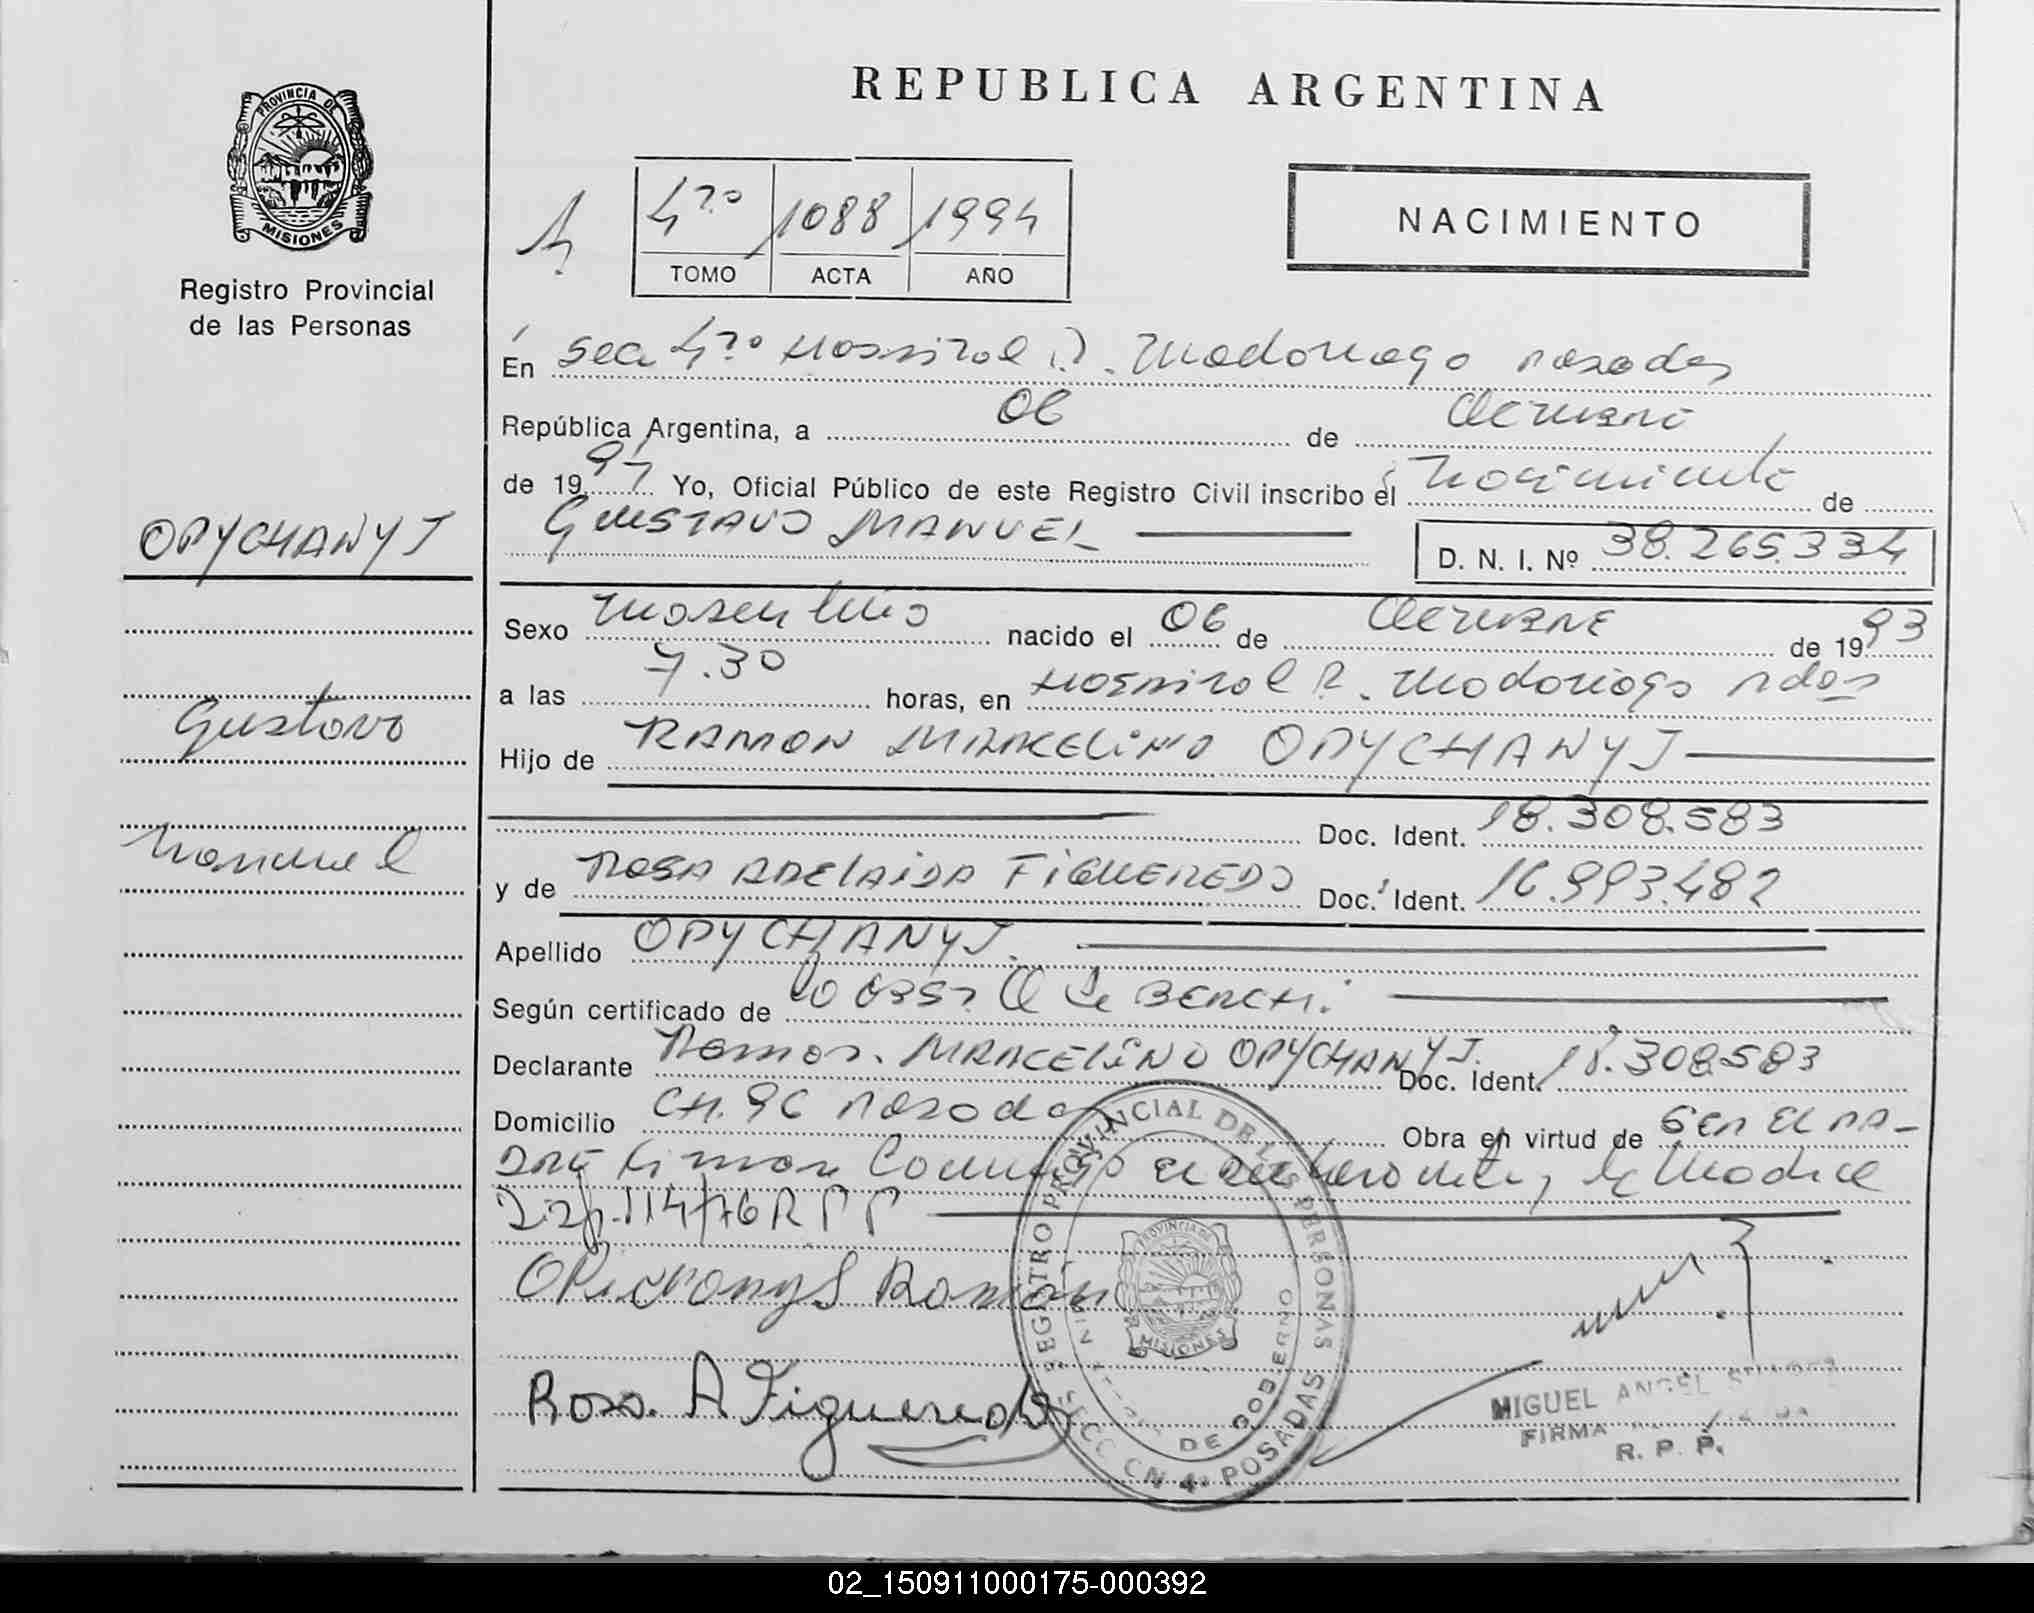 REPUBLICA ARGENTINA
PROVINCIA DE
MISIONES
Registro Provincial
de las Personas
4to 1088 1994
TOMO ACTA AÑO
NACIMIENTO
En Sec 4to Hospital R. Madariaga Posadas
República Argentina, a 06 de
de 19 Yo, Oficial Público de este Registro Civil inscribo el Nacimiento de
GUSTAVO MANUEL
D. N. I. Nº 38.265.334
OPYCHANYJ
Sexo Masculino nacido el 06 de de 1993
a las 7.30 horas, en Hospital R. Madariaga Pdas
Gustavo
Hijo de RAMON MARCELINO OPYCHANYJ
Doc. Ident. 18.308.583
Manuel
y de ROSA ADELAIDA FIGUEREDO Doc. Ident. 16.993.482
Apellido OPYCHANYJ.
Según certificado de
Declarante Ramon. MARCELINO OPYCHANYJ. Doc. Ident. 18.308583
Domicilio CH. 96 Posadas Obra en virtud de SER EL PA-
DRE Firman la Madre
114/76 R P P
Ramón
Rosa. A Figueredo
REGISTRO PROVINCIAL DE LAS PERSONAS
DE GOBIERNO
PROVINCIA DE
MISIONES
SECC. CN 4ª POSADAS
MIGUEL ANGEL
FIRMA
R. P. P.
02_150911000175-000392